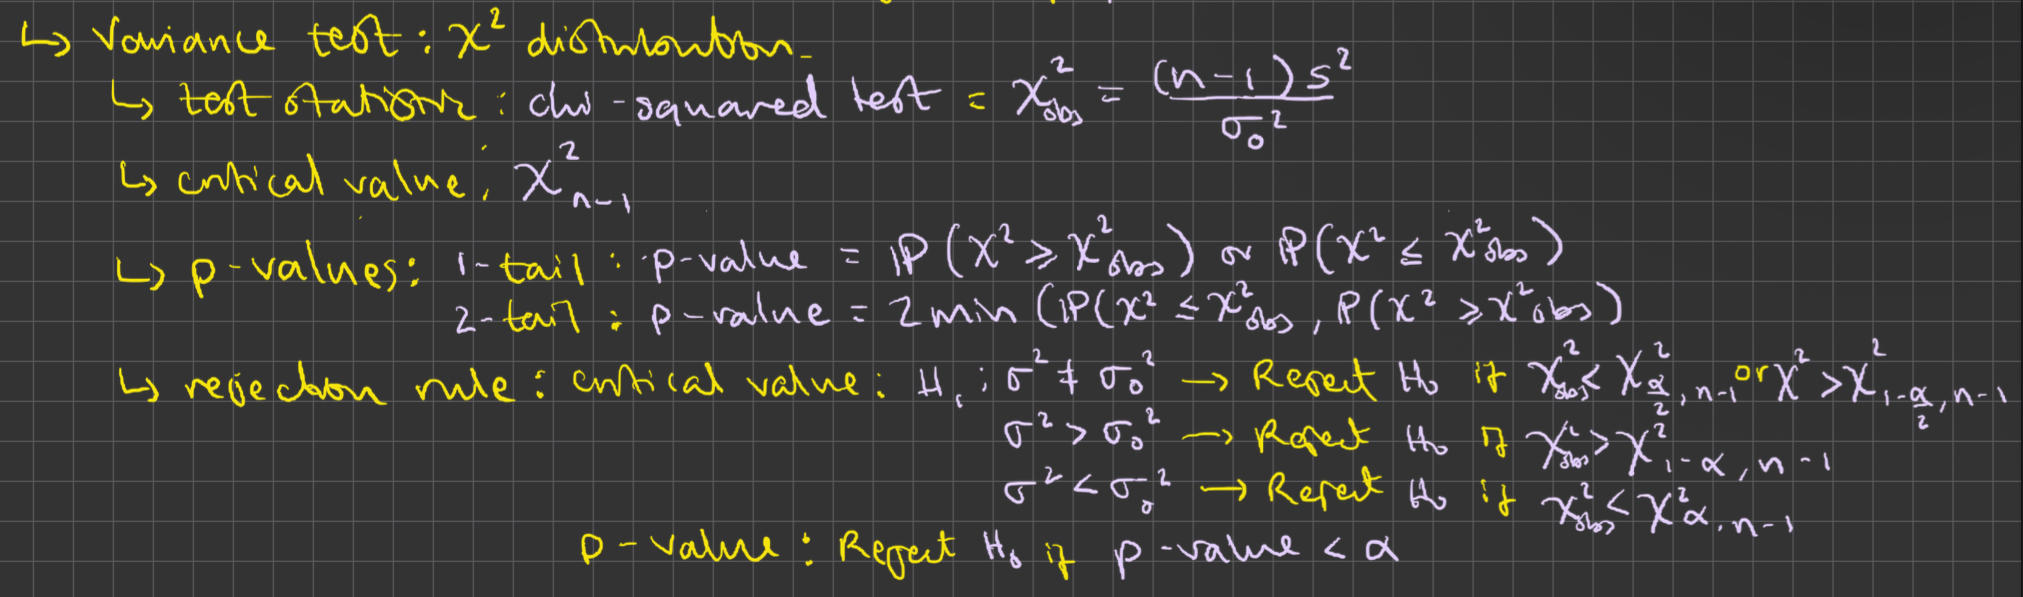 ↳ Variance test : χ² distribution.
↳ test statistic : chi-squared test = χ²obs = (n-1)s² / σ₀²
↳ critical value : χ²n-1
↳ p-values : 1-tail : p-value = ℙ(χ² ≥ χ²obs) or ℙ(χ² ≤ χ²obs)
2-tail : p-value = 2 min (ℙ(χ² ≤ χ²obs, ℙ(χ² ≥ χ²obs)
↳ rejection rule : critical value : H₁ : σ² ≠ σ₀² → Reject H₀ if χ²obs < χ²α/2, n-1 or χ² > χ²1-α/2, n-1
σ² > σ₀² → Reject H₀ if χ²obs > χ²1-α, n-1
σ² < σ₀² → Reject H₀ if χ²obs < χ²α, n-1
p-value : Reject H₀ if p-value < α